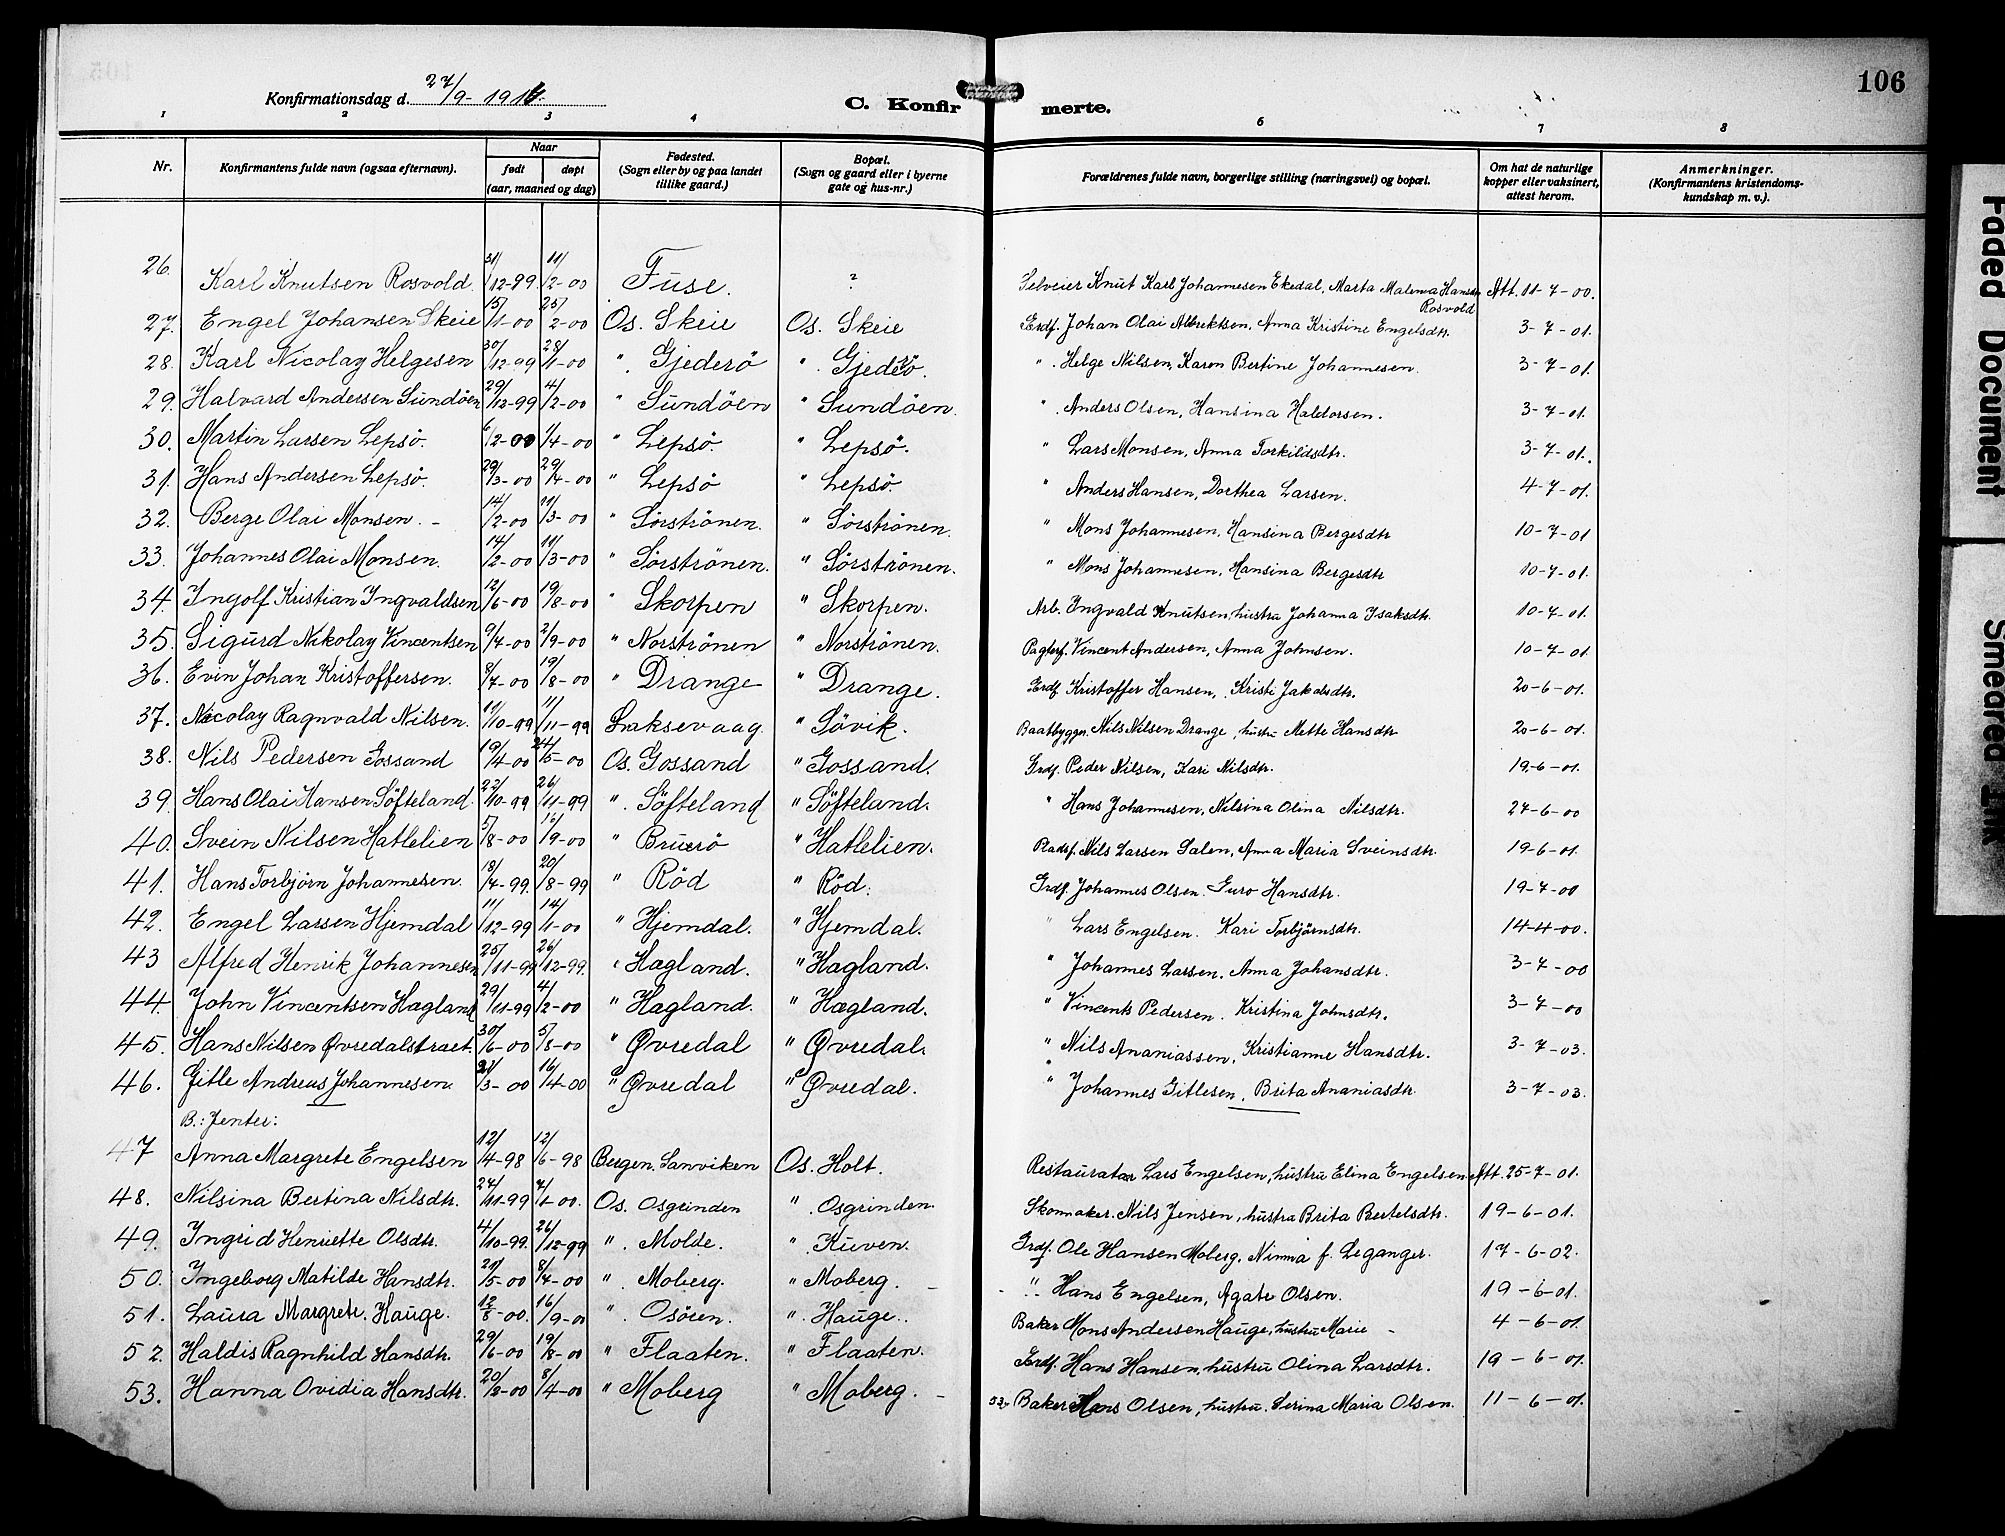 Konfirmationsdag d. 27/9-1914.
C. Konfirmerte.
106
1 2 3 4 6 7 8
Nr. | Konfirmantens fulde navn (ogsaa efternavn). | Naar født døpt (aar, maaned og dag) | Fødested. (Sogn eller by og paa landet tillike gaard.) | Bopæl. (Sogn og gaard eller i byerne gate og hus-nr.) | Forældrenes fulde navn, borgerlige stilling (næringsvei) og bopæl. | Om hat de naturlige kopper eller vaksinert, attest herom. | Anmerkninger. (Konfirmantens kristendoms-kundskap m. v.).
26. Karl Knutsen Rosvold. 31/12-99. 11/2-00 Fuse. ? Selveier Knut Karl Johannesen Ekedal, Marta Malena Hansdtr Rosvold Att. 11-7-00.
27. Engel Johansen Skeie 15/1-00 25/2-00 Os. Skeie Os. Skeie Grdf. Johan Olai Albrektsen, Anna Kristine Engelsdtr. 3-7-01.
28. Karl Nicolay Helgesen 30/12-99 28/1-00 ". Gjederö ". Gjederö. ". Helge Nilsen, Karen Bertine Johannesen. 3-7-01.
29. Halvard Andersen Sundöen 29/12-99 4/2-00 " Sundöen " Sundöen. ". Anders Olsen, Hansina Haldorsen. 3-7-01.
30. Martin Larsen Lepsö. 6/2-00 1/4-00 " Lepsö. " Lepsö. " Lars Monsen, Anna Torkildsdtr. 3-7-01.
31. Hans Andersen Lepsö. 29/3-00 29/4-00 " Lepsö " Lepsö. " Anders Hansen, Dorthea Larsen. 4-7-01.
32. Berge Olai Monsen. - 14/2-00 11/3-00 " Sörströnen. " Sörströnen. " Mons Johannesen, Hansina Bergesdtr 10-7-01
33. Johannes Olai Monsen. 14/2-00 11/3-00 " Sörströnen. " Sörströnen. " Mons Johannesen, Hansina Bergesdtr 10-7-01.
34. Ingolf Kristian Ingvaldsen 12/6-00 19/8-00 " Skorpen " Skorpen. Arb. Ingvald Knutsen, hustru Johanna Isaksdtr. 10-7-01.
35. Sigurd Nikolay Vincentsen 9/4-00 2/9-00 " Norströnen " Norströnen. Pagterf. Vincent Andersen, Anna Johnsen. 10-7-01.
36. Evin Johan Kristoffersen. 8/7-00 19/8-00 " Drange " Drange. Grdf. Kristoffer Hansen, Kristi Jakobsdtr. 20-6-01.
37. Nicolay Ragnvald Nilsen. 11/10-99 11/11-99 Laksevaag " Sövik. Baatbyggr. Nils Nilsen Drange, hustru Mette Hansdtr 20-6-01.
38. Nils Pedersen Gossand 19/4-00 24/5-00 Os. Gossand " Gossand. Grdf. Peder Nilsen, Kari Nilsdtr. 19-6-01.
39. Hans Olai Hansen Söfteland. 22/10-99 26/11-99 ". Söfteland " Söfteland. " Hans Johannesen, Nilsina Olina Nilsdtr. 27-6-00
40. Svein Nilsen Hatlelien 5/8-00 16/9-00 " Bruerö " Hatlelien. Pladsf. Nils Larsen Salen, Anna Maria Sveinsdtr. 19-6-01.
41. Hans Torbjörn Johannesen. 18/7-99. 20/8-99 " Röd " Röd. Grdf. Johannes Olsen. Guro Hansdtr. 19-7-00
42. Engel Larsen Hjemdal 11/12-99 14/1-00 " Hjemdal. " Hjemdal. " Lars Engelsen. Kari Torbjörnsdtr. 14-4-00.
43 Alfred Henrik Johannesen 25/11-99 26/12-99. " Hagland. " Hagland. " Johannes Larsen. Anna Johansdtr. 3-7-00
44. John Vincentsen Hagland 29/11-99 4/2-00 " Hagland. " Hagland. " Vincents Pedersen. Kristina Johnsdtr. 3-7-00
45. Hans Nilsen Øvredalstræet. 30/6-00 5/8-00 " Øvredal " Øvredal. " Nils Ananiassen, Kristianne Hansdtr. 3-7-03.
46. Gitle Andreas Johannesen. 21/3-00 16/4-00 " Øvredal " Øvredal. " Johannes Gitlesen. Brita Ananiasdtr. 3-7-03.
B.: Jenter:
47 Anna Margrete Engelsen 12/4-98 12/6-98 Bergen. Sanviken Os. Holt. Restauratør Lars Engelsen, hustru Elina Engelsen Att. 25-7-01.
48. Nilsina Bertina Nilsdtr. 27/11-99 7/1-00. Os. Osgrinden " Osgrinden. Skomaker. Nils Jensen, hustru Brita Bertelsdtr. 19-6-01.
49. Ingrid Henriette Olsdtr. 4/10-99. 26/12-99 ". Molde. ". Kuven. Grdf. Ole Hansen Moberg. Ninnia f. Leganger. 17-6-02.
50. Ingeborg Matilde Hansdtr. 21/5-00 8/7-00 ". Moberg. " Moberg. - " Hans Engelsen, Agate Olsen. 19-6-01.
51. Laura Margrete. Hauge. 12/8-00. 16/9-00 ". Osören. ". Hauge. Baker Mons Andersen Hauge, hustru Marie - 4-6-01.
52. Haldis Ragnhild Hansdtr. 29/6-00 19/8-00 " Flaaten. " Flaaten. Grdf. Hans Hansen, hustru Olina Larsdtr. 19-6-01.
53. Hanna Ovidia Hansdtr. 20/2-00 8/4-00 " Moberg " Moberg. - 53. Baker Hans Olsen, hustru. Serina Maria Olsen. 11-6-01.
Faded Document
Smeared Ink